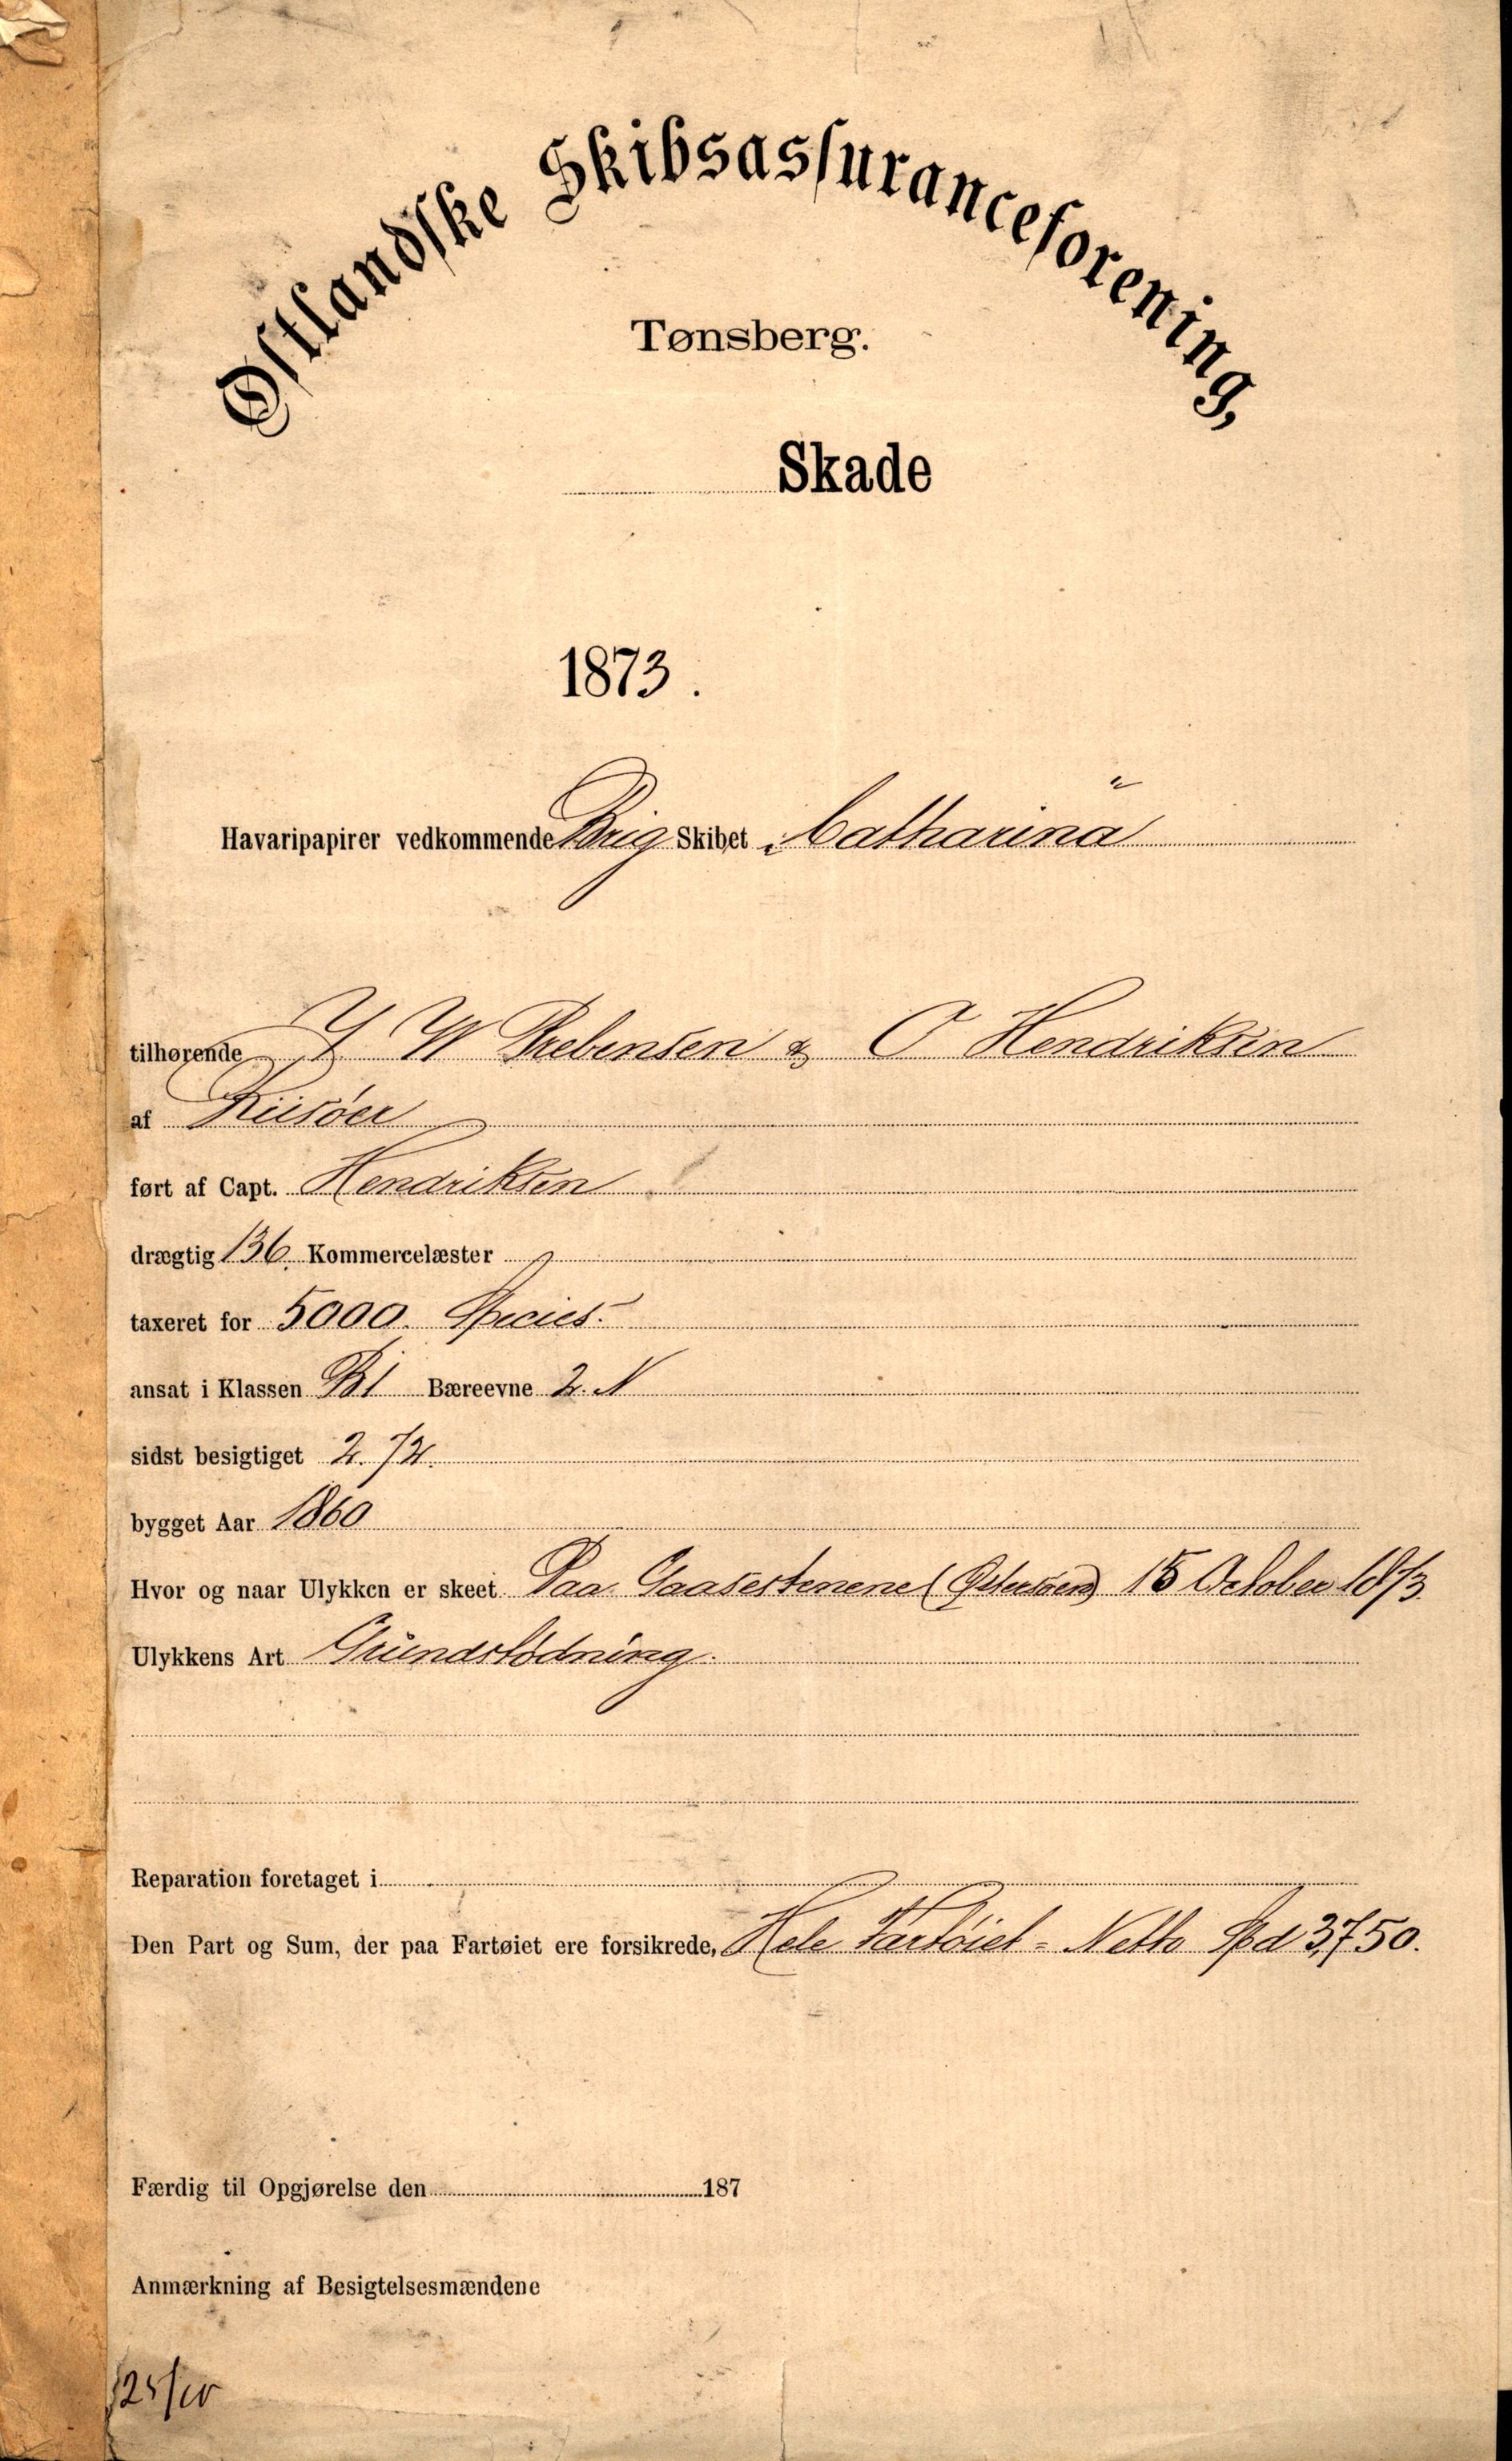 Østlandske Skibsassuranceforening,
Tønsberg.
Skade
1873.
Havaripapirer vedkommende Brig Skibet „Catharina“
tilhørende J W Prebensen & O Hendriksen
af Riisøer
ført af Capt. Hendriksen
drægtig 136. Kommercelæster
taxeret for 5000. Species.
ansat i Klassen B1 Bæreevne 2. N
sidst besigtiget 2. 72.
bygget Aar 1860
Hvor og naar Ulykken er skeet Paa Gaasestenene (Østersøen) 15 October 1873.
Ulykkens Art Grundstødning.
Reparation foretaget i
Den Part og Sum, der paa Fartøiet ere forsikrede, Hele Fartøiet = Netto Spd 3,750.
Færdig til Opgjørelse den 187
Anmærkning af Besigtelsesmændene
25/10